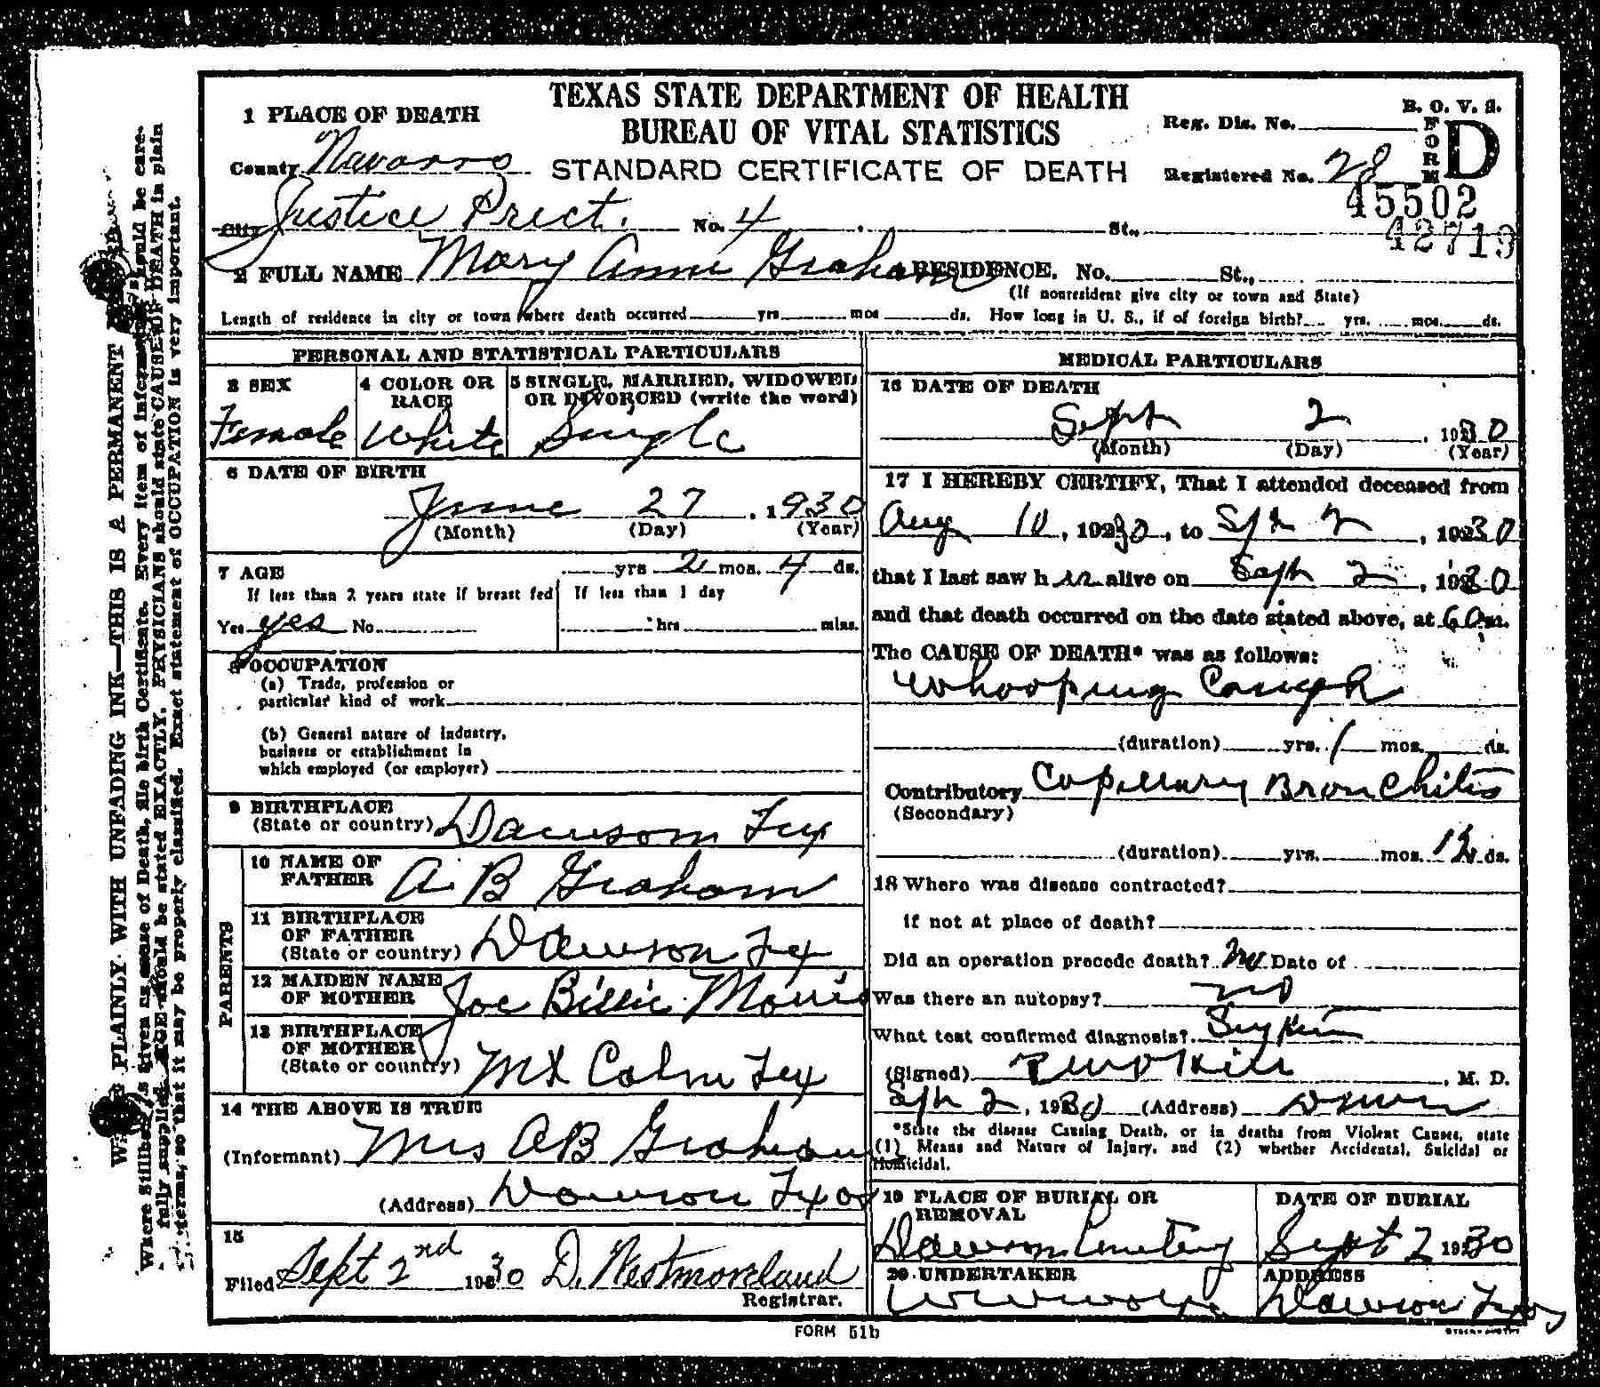 TEXAS STATE DEPARTMENT OF HEALTH
BUREAU OF VITAL STATISTICS
STANDARD CERTIFICATE OF DEATH
B. O. V. S.
FORM D
Reg. Dis. No.
Registered No. 28
45502
42719
1 PLACE OF DEATH
County Navarro
City Justice Prect. No. 4 St.,
2 FULL NAME Mary Anne Graham RESIDENCE. No. St.,
(If nonresident give city or town and State)
Length of residence in city or town where death occurred yrs. mos ds. How long in U. S., if of foreign birth? yrs. mos. ds.
PERSONAL AND STATISTICAL PARTICULARS
3 SEX
Female
4 COLOR OR RACE
White
5 SINGLE, MARRIED, WIDOWED
OR DIVORCED (write the word)
Single
6 DATE OF BIRTH
June 27, 1930
(Month) (Day) (Year)
7 AGE yrs 2 mos. 4 ds.
If less than 2 years state if breast fed
Yes yes No
If less than 1 day
hrs mins.
8 OCCUPATION
(a) Trade, profession or
particular kind of work
(b) General nature of industry,
business or establishment in
which employed (or employer)
9 BIRTHPLACE
(State or country) Dawson Tex
PARENTS
10 NAME OF
FATHER A B Graham
11 BIRTHPLACE
OF FATHER
(State or country) Dawson Tex
12 MAIDEN NAME
OF MOTHER Joe Billie Morris
13 BIRTHPLACE
OF MOTHER
(State or country) Mt Calm Tex
14 THE ABOVE IS TRUE
(Informant) Mrs A B Graham
(Address) Dawson Texas
15
Filed Sept 2nd 1930 D. Westmoreland
Registrar.
MEDICAL PARTICULARS
16 DATE OF DEATH
Sept 2, 1930
(Month) (Day) (Year)
17 I HEREBY CERTIFY, That I attended deceased from
Aug 10, 1930, to Sept 2, 1930
that I last saw her alive on Sept 2, 1930
and that death occurred on the date stated above, at 6 a m.
The CAUSE OF DEATH* was as follows:
Whooping Cough
(duration) yrs. 1 mos. ds.
Contributory Capillary Bronchitis
(Secondary)
(duration) yrs. mos. ds.
18 Where was disease contracted?
if not at place of death?
Did an operation precede death? no Date of
Was there an autopsy? no
What test confirmed diagnosis?
(Signed) , M. D.
Sept 2, 1930 (Address) Dawson
*State the disease Causing Death, or in deaths from Violent Causes, state
(1) Means and Nature of Injury, and (2) whether Accidental, Suicidal or
Homicidal.
19 PLACE OF BURIAL OR
REMOVAL
Dawson Cemetery
DATE OF BURIAL
Sept 2 1930
20 UNDERTAKER
ADDRESS
Dawson Texas
FORM 51b
PLAINLY WITH UNFADING INK—THIS IS A PERMANENT
Where Stillbirth is given as cause of Death, file birth Certificate. Every item of information should be care-
fully supplied. AGE should be stated EXACTLY. PHYSICIANS should state CAUSE OF DEATH in plain
terms, so that it may be properly classified. Exact statement of OCCUPATION is very important.